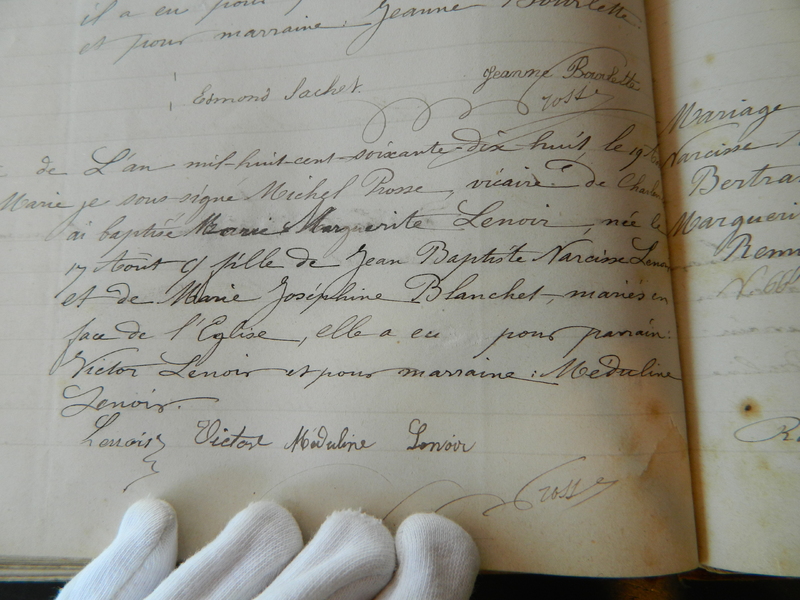 il a eu pour
et pour marraine: Jeanne Bourlette.
Edmond Sachet. Jeanne Bourlette
rosse
de L'an mil-huit-cent-soixante-dix-huit, le 19
Marie je sous-signé Michel Prosse, vicaire de
ai baptisé Marie Marguerite Lenoir, née le
17 Août fille de Jean Baptiste Narcisse Lenoir
et de Marie Joséphine Blanchet, mariés en
face de l'Eglise, elle a eu pour parrain:
Victor Lenoir et pour marraine: Méduline
Lenoir.
Lenoir Victor Méduline Lenoir
rosse
Mariage
Narcisse
Bertra
Margueri
Remi